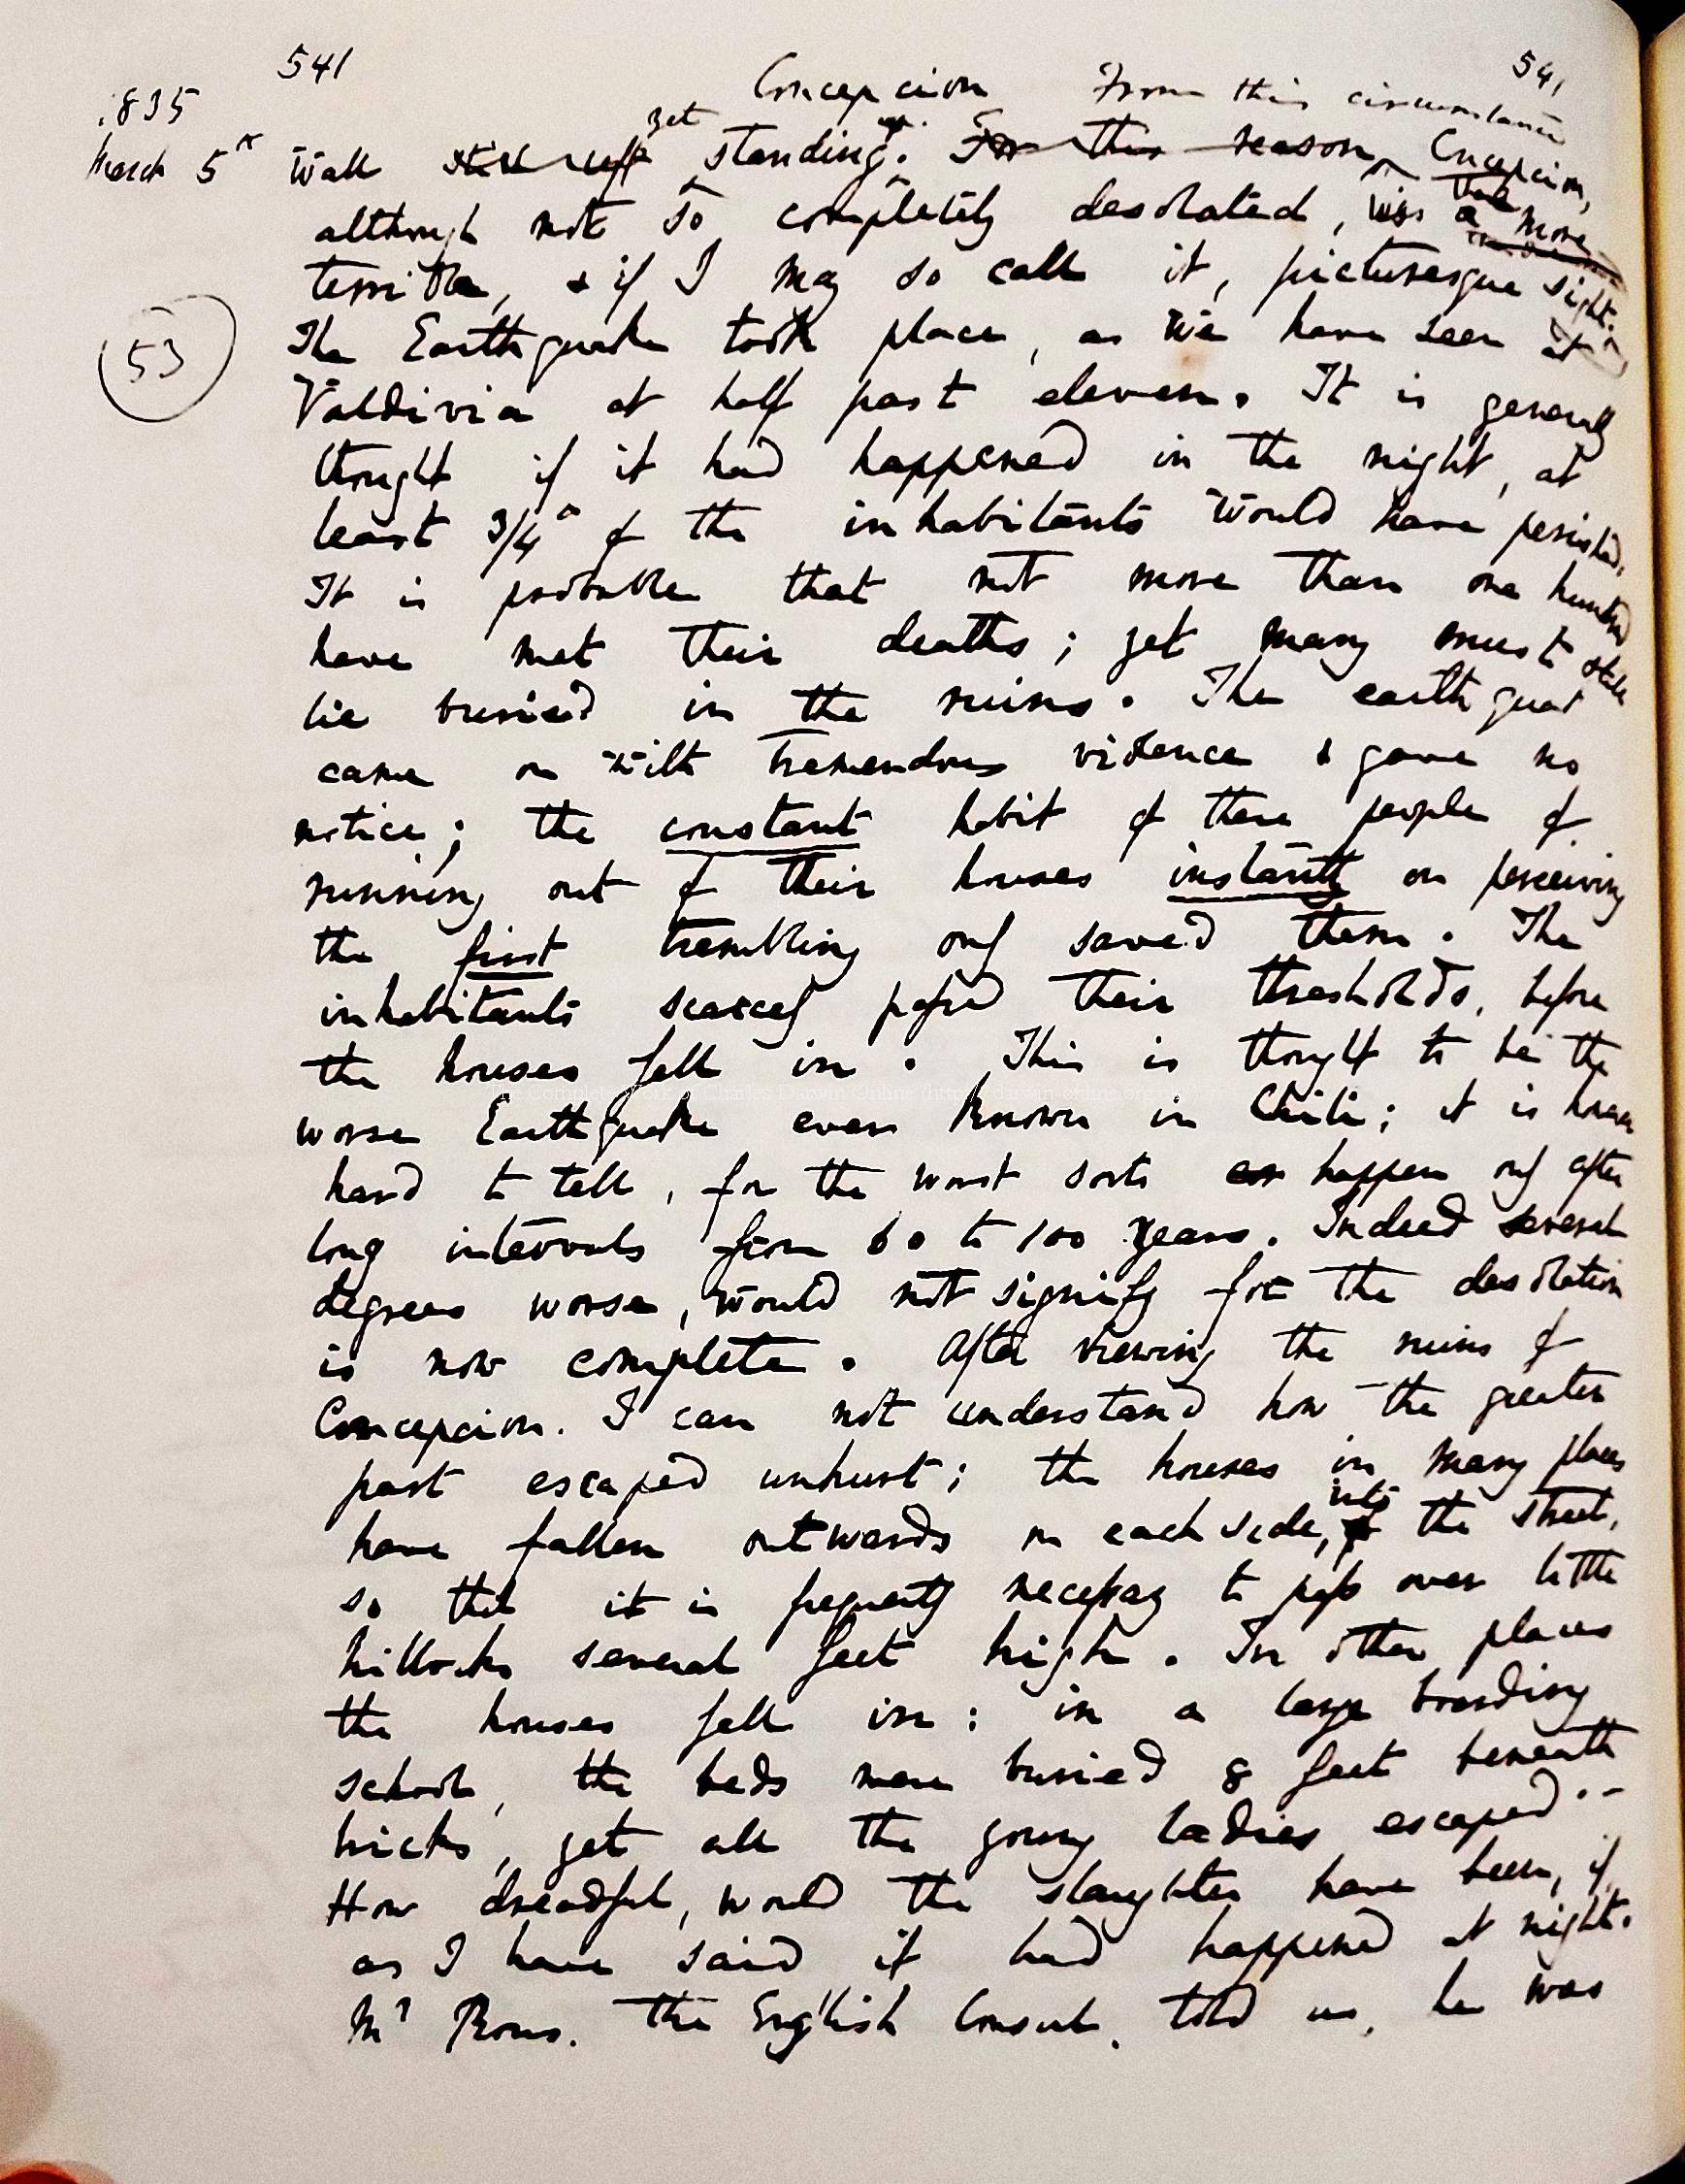 541 Concepcion From this circumstance 541
1835
March 5th Wall still left yet standing. For this reason Concepcion,
although not so completely desolated, was a more
terrible, & if I may so call it, picturesque sight.
The Earthquake took place, as we have seen at
(53)
Valdivia at half past eleven. It is generally
thought if it had happened in the night, at
least 3/4s of the inhabitants would have perished.
It is probable that not more than one hundred
have met their deaths; yet many must still
lie buried in the ruins. The earthquake
came on with tremendous violence & gave no
notice; the constant habit of these people of
running out of their houses instantly on perceiving
the first trembling only saved them. The
inhabitants scarcely passed their thresholds, before
the houses fell in. This is thought to be the
worse Earthquake ever known in Chili; it is however
hard to tell, for the worst sorts happen only after
long intervals from 60 to 100 years. Indeed several
degrees worse, would not signify for the desolation
is now complete. After viewing the ruins of
Concepcion. I can not understand how the greater
part escaped unhurt; the houses in many places
have fallen outwards on each side, into the street,
so that it is frequently necessary to pass over little
hillocks several feet high. In other places
the houses fell in: in a large boarding
school, the beds were buried 8 feet beneath
bricks, yet all the young ladies escaped. —
How dreadful, would the slaughter have been, if,
as I have said it had happened at night.
Mr Rous. the English Consul. told us, he was